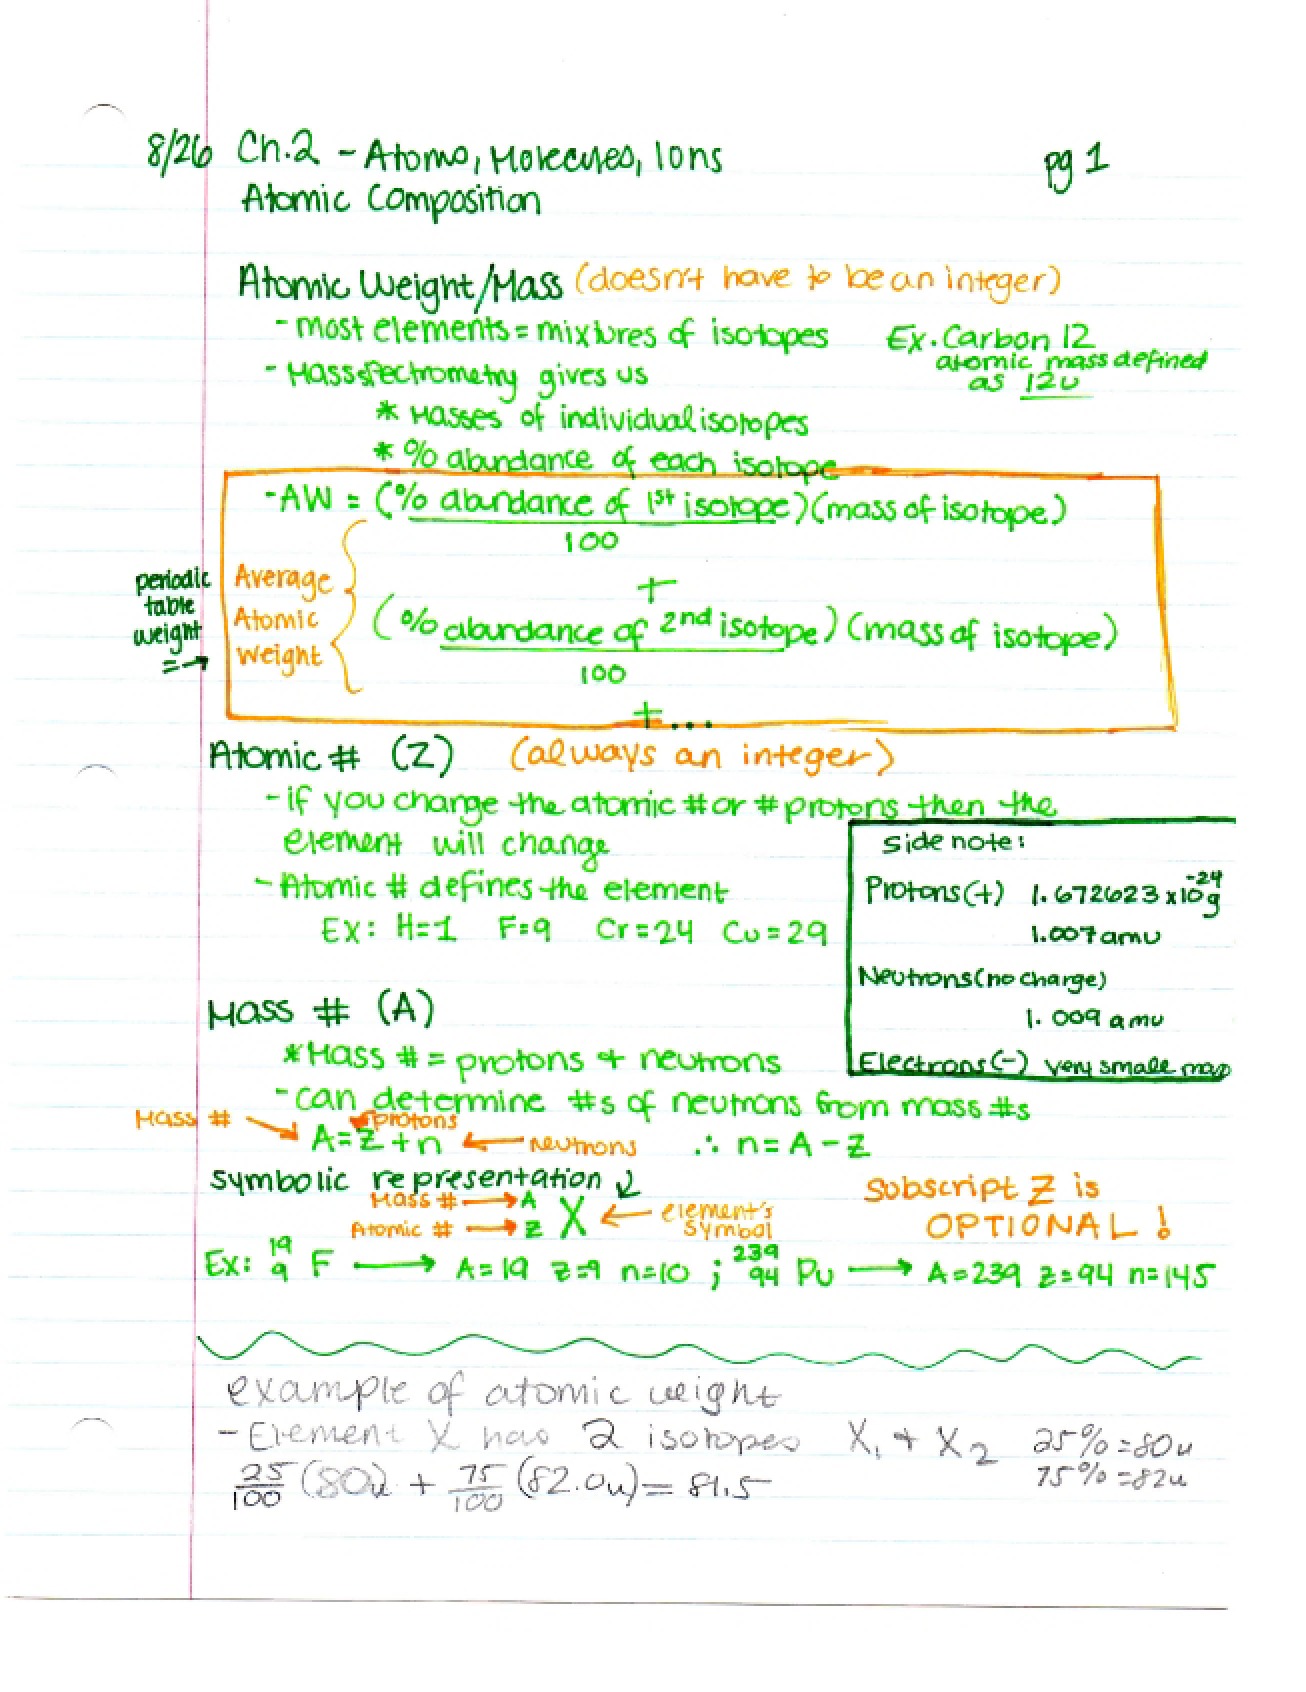 8/26 Ch.2 - Atoms, Molecules, Ions pg 1
Atomic Composition
Atomic Weight/Mass (doesn't have to be an integer)
- most elements = mixtures of isotopes Ex. Carbon 12
atomic mass defined
as 12u
- Mass spectrometry gives us
* Masses of individual isotopes
* % abundance of each isotope
- AW = (% abundance of 1st isotope)(mass of isotope)
100
+
periodic table weight =→
Average Atomic Weight
(% abundance of 2nd isotope)(mass of isotope)
100
+...
Atomic # (Z) (always an integer)
- if you change the atomic # or # protons then the
element will change
- Atomic # defines the element
Ex: H=1 F=9 Cr=24 Cu=29
Side note:
Protons(+) 1.672623 x10⁻²⁴g
1.007 amu
Neutrons(no charge)
1.009 amu
Electrons(-) very small map
Mass # (A)
* Mass # = protons + neutrons
- can determine #s of neutrons from mass #s
Mass # → protons
A=Z+n ← Neutrons ∴ n=A-Z
symbolic representation ↓
Mass # → A
Atomic # → Z X ← element's symbol
Subscript Z is
OPTIONAL!
Ex: ¹⁹₉ F → A=19 Z=9 n=10 ; ²³⁹₉₄ Pu → A=239 Z=94 n=145
example of atomic weight
- Element X has 2 isotopes X₁ + X₂ 25%=80u
75%=82u
25/100 (80u) + 75/100 (82.0u) = 81.5